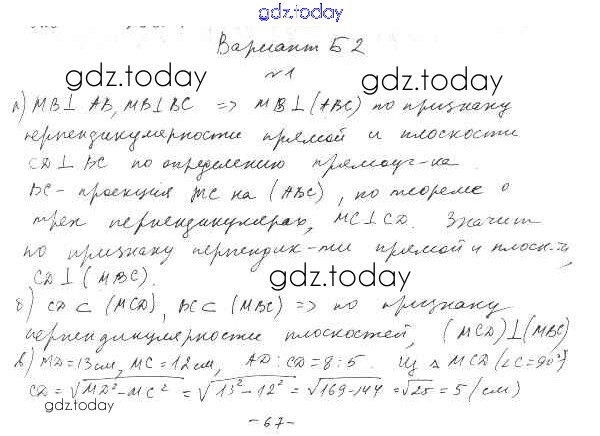 gdz.today
Вариант Б2
gdz.today gdz.today
№1
а) MB⊥ AB, MB⊥BC => MB⊥(ABC) по признаку
перпендикулярности прямой и плоскости
CD⊥ BC по определению прямоуг-ка.
BC - проекция MC на (ABC), по теореме о
трех перпендикулярах, MC⊥CD. Значит
по признаку перпендик-ти прямой и плоск-и,
CD⊥(MBC).
gdz.today gdz.today
б) CD⊂(MCD), BC⊂(MBC) => по признаку
перпендикулярности плоскостей, (MCD)⊥(MBC)
в) MD=13см, MC=12см, AD:CD=8:5. Из △MCD(∠C=90°)
CD=√MD²-MC² = √13²-12² = √169-144 = √25 = 5 (см)
gdz.today
-67-